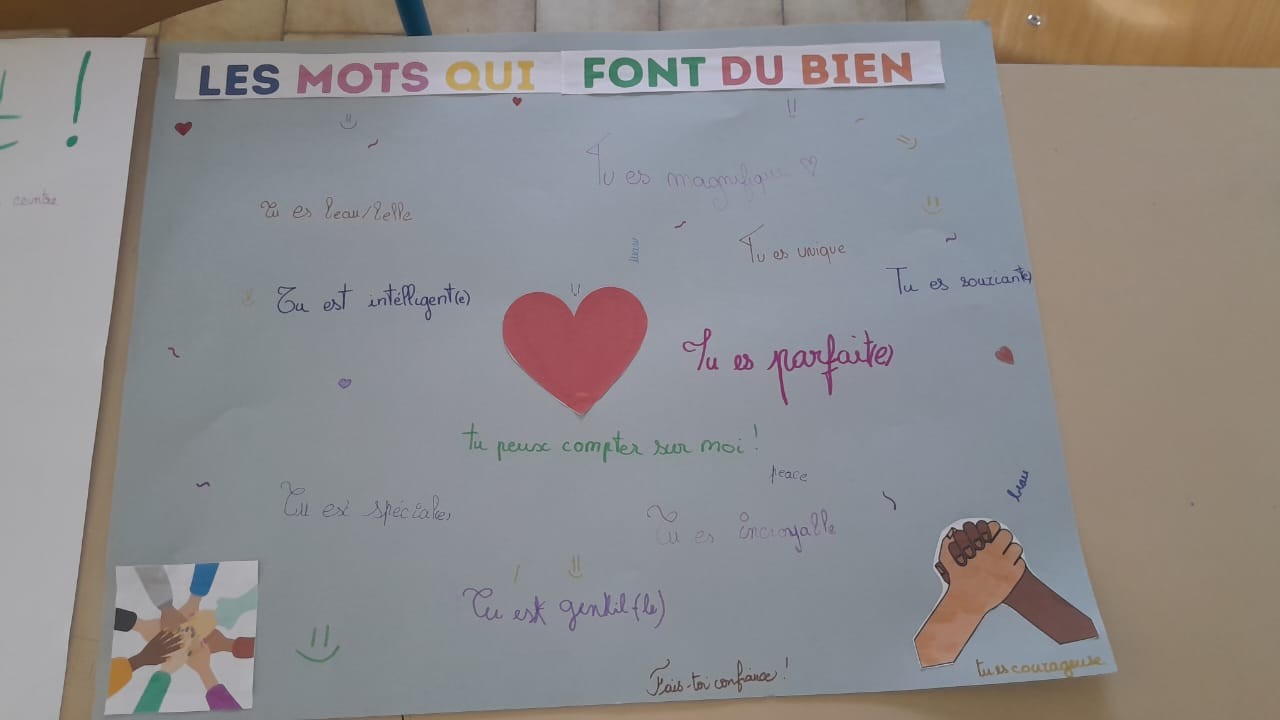 LES MOTS QUI FONT DU BIEN
Tu es magnifique
Tu es beau/belle
Tu es unique
beau
Tu es souriant(e)
Tu est intélligent(e)
Tu es parfait(e)
tu peux compter sur moi !
peace
beau
Tu est spéciale
Tu es incroyable
Tu est gentil(le)
Fais-toi confiance !
tu es courageuse
!
contre